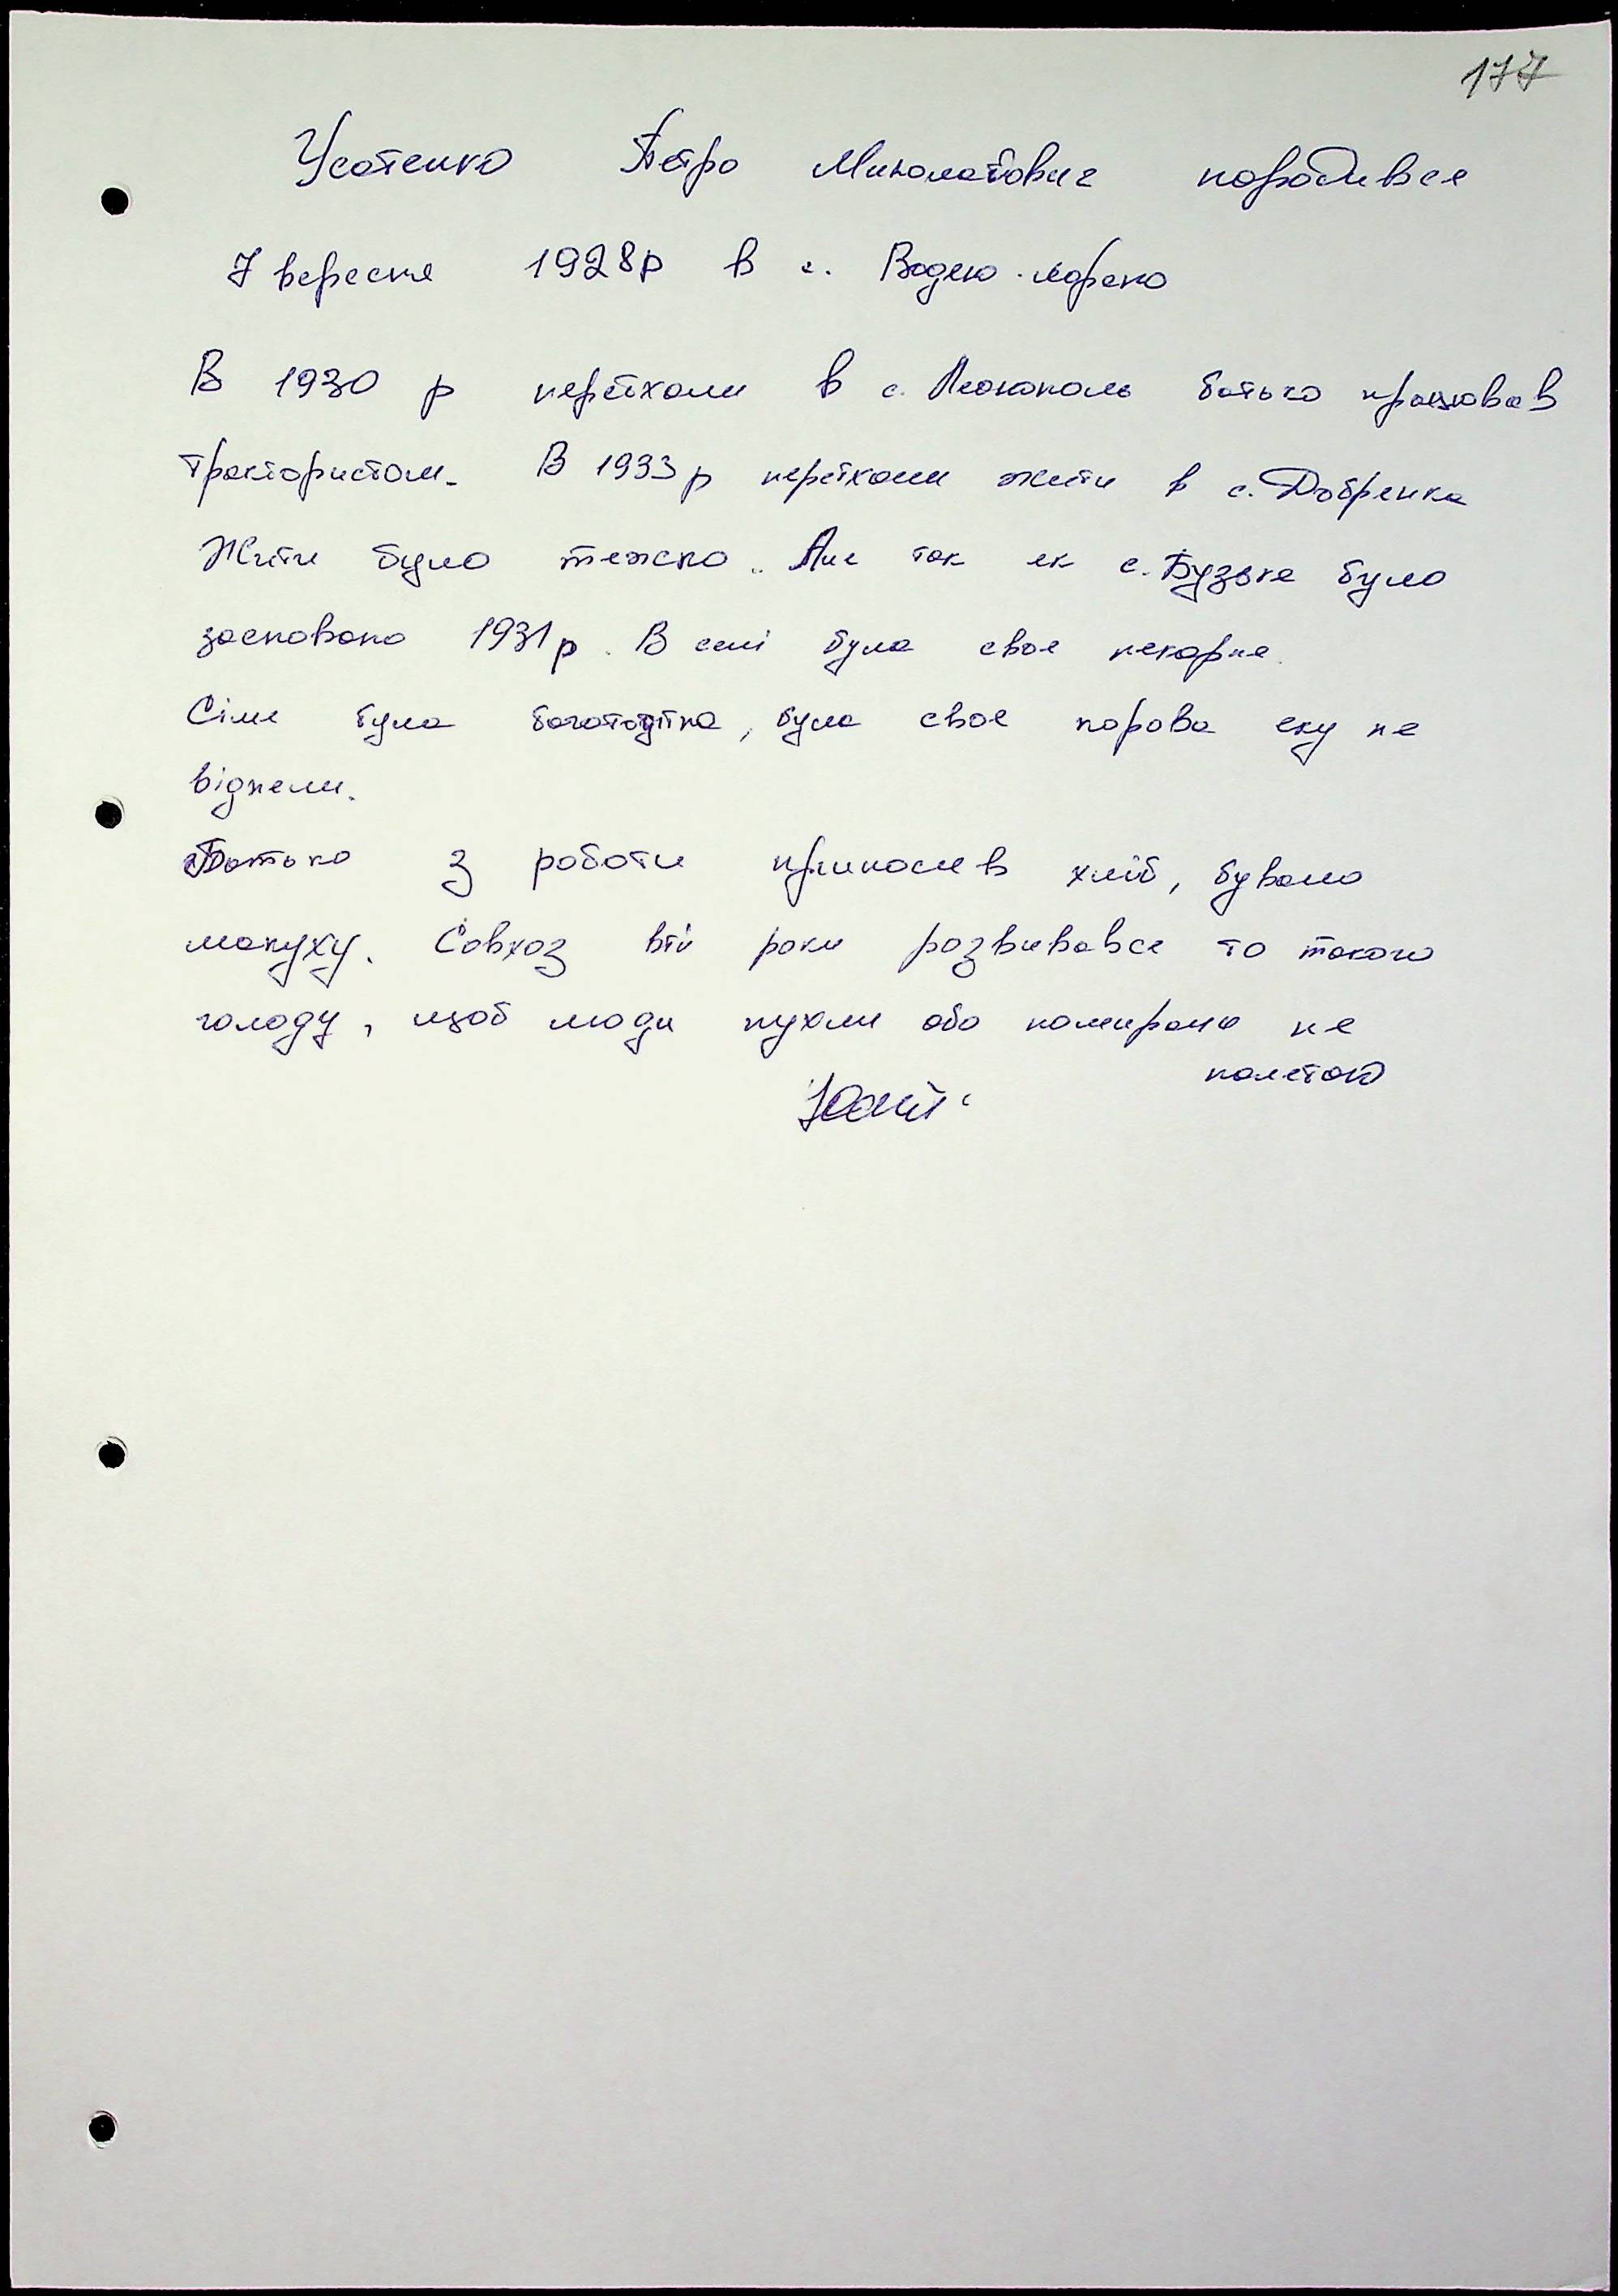 177
Усатенко Петро Миколайович народився
7 вересня 1928р в с. Водяно-Лорино
В 1930 р переїхали в с. Акмополь батько працював
трактористом. В 1933р переїхали жити в с. Добрянка
Жити було тяжко. Але так як с. Бузьке було
засновано 1931р. В селі була своя пекарня.
Сімя була багатодітна, була своя корова яку не
відняли.
Батько з роботи приносив хліб, бувало
макуху. Совхоз в ті роки розвивався то такого
голоду, щоб люди пухли або помирали не
памятаю